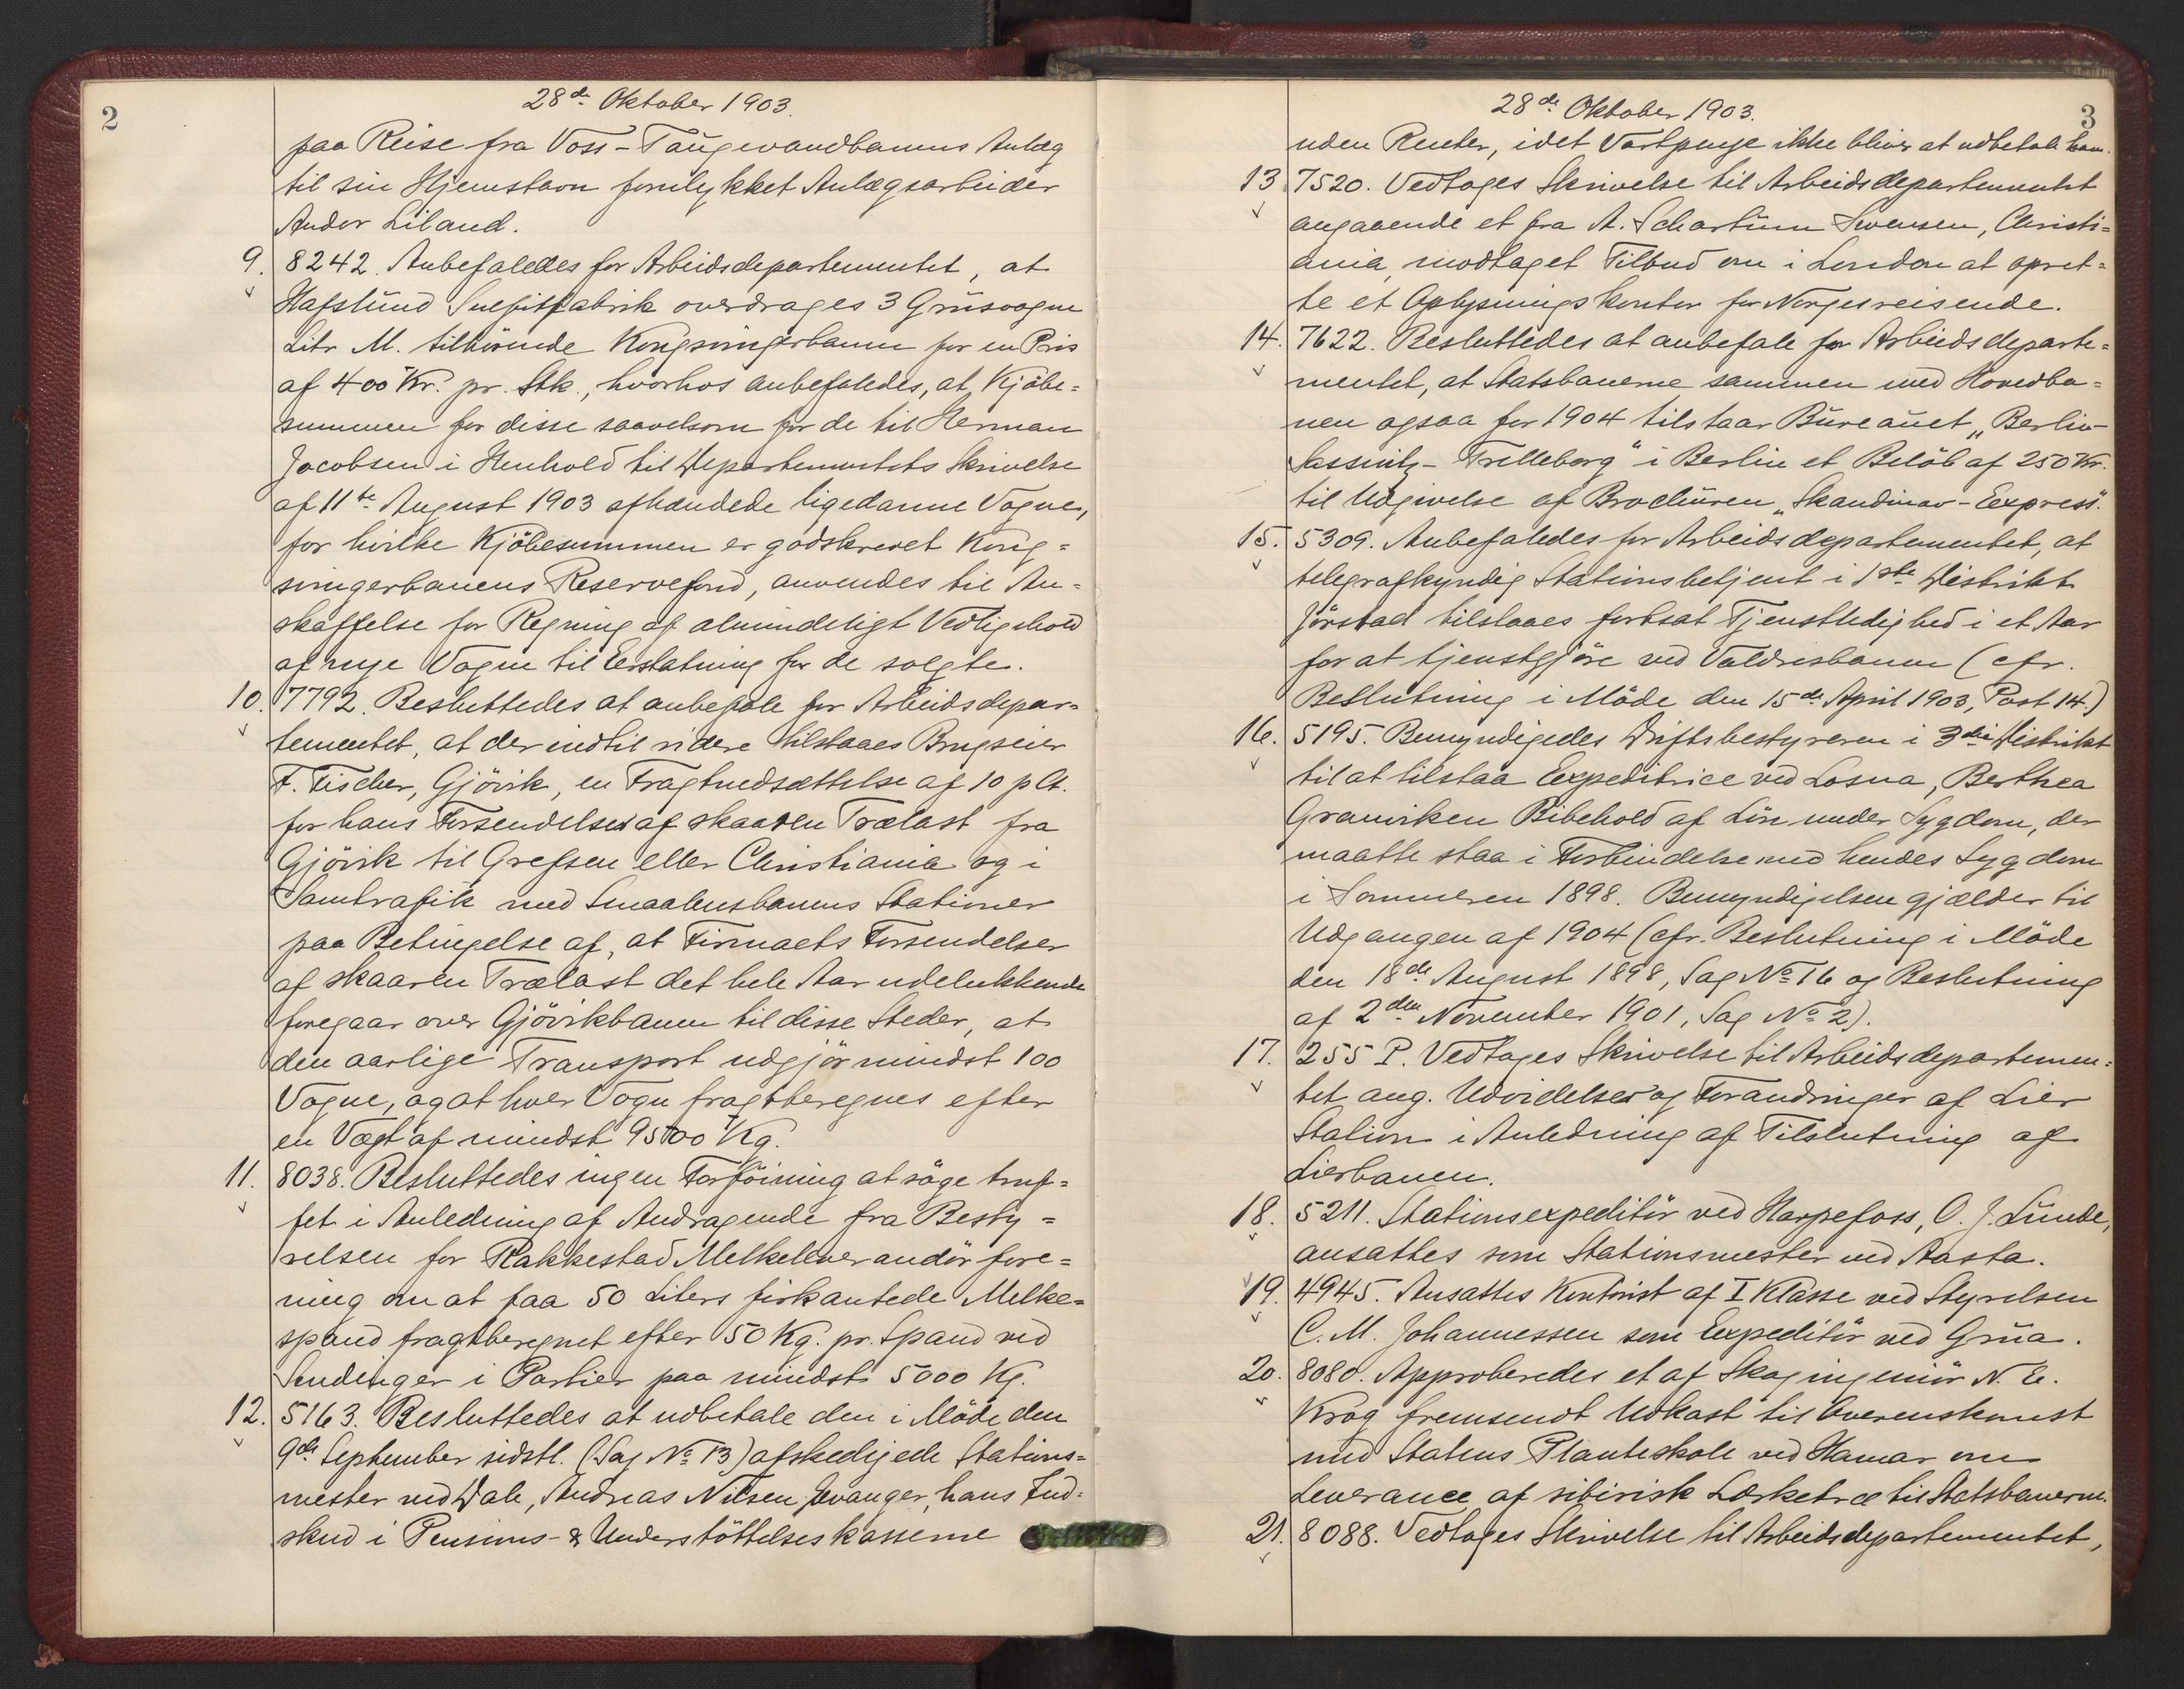 2
28de Oktober 1903.
paa Reise fra Voss-Taugevandbanens Anlæg
til sin Hjemstavn forulykket Anlægsarbeider
Andor Liland.
9. 8242. Anbefaledes for Arbeidsdepartementet, at
Hafslund Sulfitfabrik overdrages 3 Grusvogne
Litr M. tilhörende Kongsvingerbanen for en Pris
af 400 Kr. pr. Stk., hvorhos anbefaledes, at Kjöbe=
summen for disse saavelsom for de til Herman
Jacobsen i Henhold til Departementets Skrivelse
af 11te August 1903 afhændede ligedanne Vogne,
for hvilke Kjöbesummen er godskrevet Kong=
svingerbanens Reservefond, anvendes til An=
skaffelse for Regning af almindeligt Vedligehold
af nye Vogne til Erstatning for de solgte.
10. 7792. Besluttedes at anbefale for Arbeidsdepar=
tementet, at der indtil videre tilstaaes Brugseier
F. Fischer, Gjövik, en Fragtnedsættelse af 10 pCt.
for hans Forsendelser af skaaren Trælast fra
Gjövik til Grefsen eller Christiania og i
Samtrafik med Smaalensbanens Stationer
paa Betingelse af, at Firmaets Forsendelser
af skaaren Trælast det hele Aar udelukkende
foregaar over Gjövikbanen til disse Steder, at
den aarlige Transport udgjör mindst 100
Vogne, og at hver Vogn fragtberegnes efter
en Vægt af mindst 9500 Kg.
11. 8038. Besluttedes ingen Forföining at söge truf=
fet i Anledning af Andragende fra Besty=
relsen for Rakkestad Melkeleverandörfore=
ning om at faa 50 Liters firkantede Melke=
spand fragtberegnet efter 50 Kg. pr. Spand ved
Sendinger i Partier paa mindst 5000 Kg.
12. 5163. Besluttedes at udbetale den i Möde den
9de September sidstl. (Sag No 13) afskedigede Stations=
mester ved Dale, Andreas Nilsen Evanger, hans Ind=
skud i Pensions- & Understöttelseskasserne
3
28de Oktober 1903.
uden Renter, idet Vartpenge ikke bliver at udbetale ham.
13 7520. Vedtoges Skrivelse til Arbeidsdepartementet
angaaende et fra A. Schartum Svensen, Christi=
ania, modtaget Tilbud om i London at opret=
te et Oplysningskontor for Norgesreisende.
14. 7622. Besluttedes at anbefale for Arbeidsdeparte=
mentet, at Statsbanerne sammen med Hovedba=
nen ogsaa for 1904 tilstaar Bureauet „Berlin-
Sassnitz-Trelleborg" i Berlin et Belöb af 250 Kr.
til Udgivelse af Brochuren „Skandinav-Express".
15. 5309. Anbefaledes for Arbeidsdepartementet, at
telegrafkyndig Stationsbetjent i 1ste Distrikt
Jörstad tilstaaes fortsat Tjenstledighed i et Aar
for at tjenstgjöre ved Valdresbanen (cfr.
Beslutning i Möde den 15de April 1903, Post 14.)
16. 5195. Bemyndigedes Driftsbestyreren i 3die Distrikt
til at tilstaa Expeditrice ved Losna, Berthea
Granviken Bibehold af Lön under Sygdom, der
maatte staa i Forbindelse med hendes Sygdom
i Sommeren 1898. Bemyndigelsen gjælder til
Udgangen af 1904 (cfr. Beslutning i Möde
den 18de August 1898, Sag No 16 og Beslutning
af 2den November 1901, Sag No 2).
17. 255 P. Vedtoges Skrivelse til Arbeidsdepartemen=
tet ang. Udvidelser og Forandringer af Lier
Station i Anledning af Tilslutning af
Lierbanen.
18. 5211. Stationsexpeditör ved Harpefoss, O. J. Lunde,
ansattes som Stationsmester ved Aasta.
19. 4945. Ansattes Kontorist af I Klasse ved Styrelsen
C. M. Johannessen som Expeditör ved Grua.
20. 8080. Approberedes et af Skogingeniör N. E.
Krog fremsendt Udkast til Overenskomst
med Statens Planteskole ved Hamar om
Leverance af sibirisk Lærketræ til Statsbanerne.
21. 8088. Vedtoges Skrivelse til Arbeidsdepartementet,